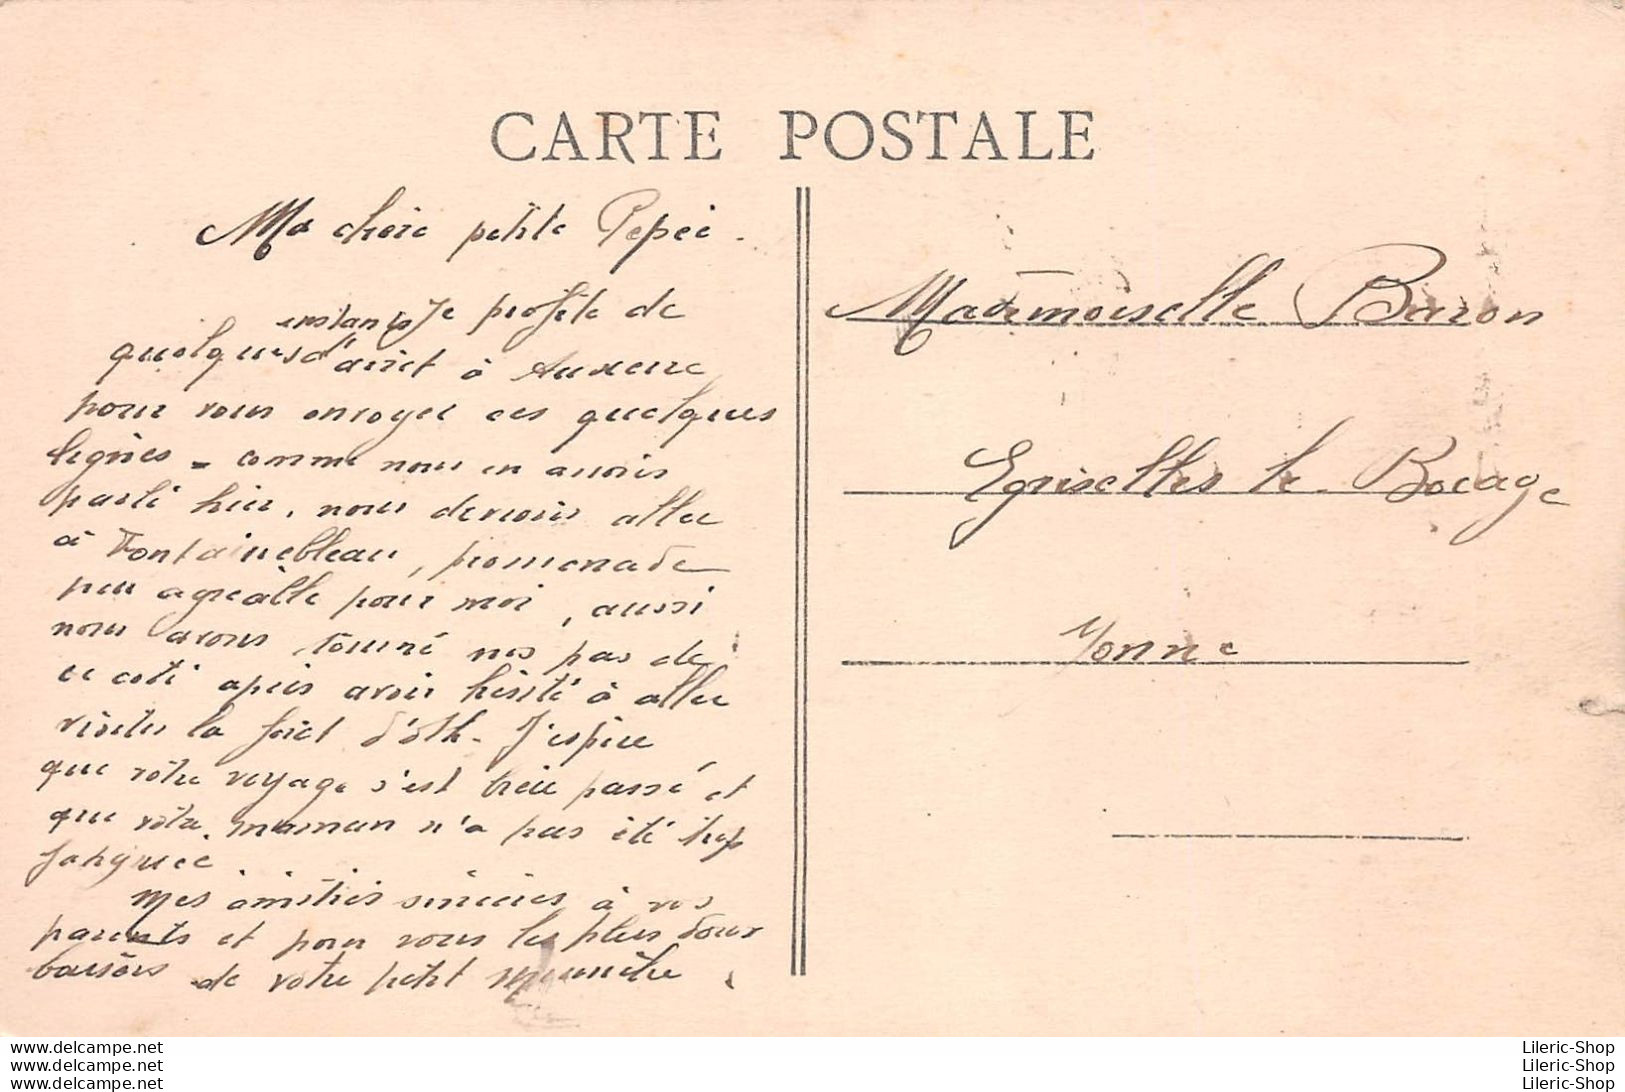 CARTE POSTALE
Ma chère petite Pepée.
Je profite de
quelques instants d'arrêt à Auxerre
pour vous envoyer ces quelques
lignes - comme nous en avions
parlé hier, nous devions aller
à Fontainebleau, promenade
peu agréable pour moi, aussi
nous avons tourné nos pas de
ce coté après avoir hésité à aller
visiter la forêt d'Oth. J'espère
que votre voyage s'est bien passé et
que votre maman n'a pas été trop
fatiguée.
Mes amitiés sincères à vos
parents et pour vous les plus doux
baisers de votre petit
Mademoiselle Baron
Egriselles le Bocage
Yonne
www.delcampe.net
www.delcampe.net
www.delcampe.net
Lileric-Shop
Lileric-Shop
Lileric-Shop